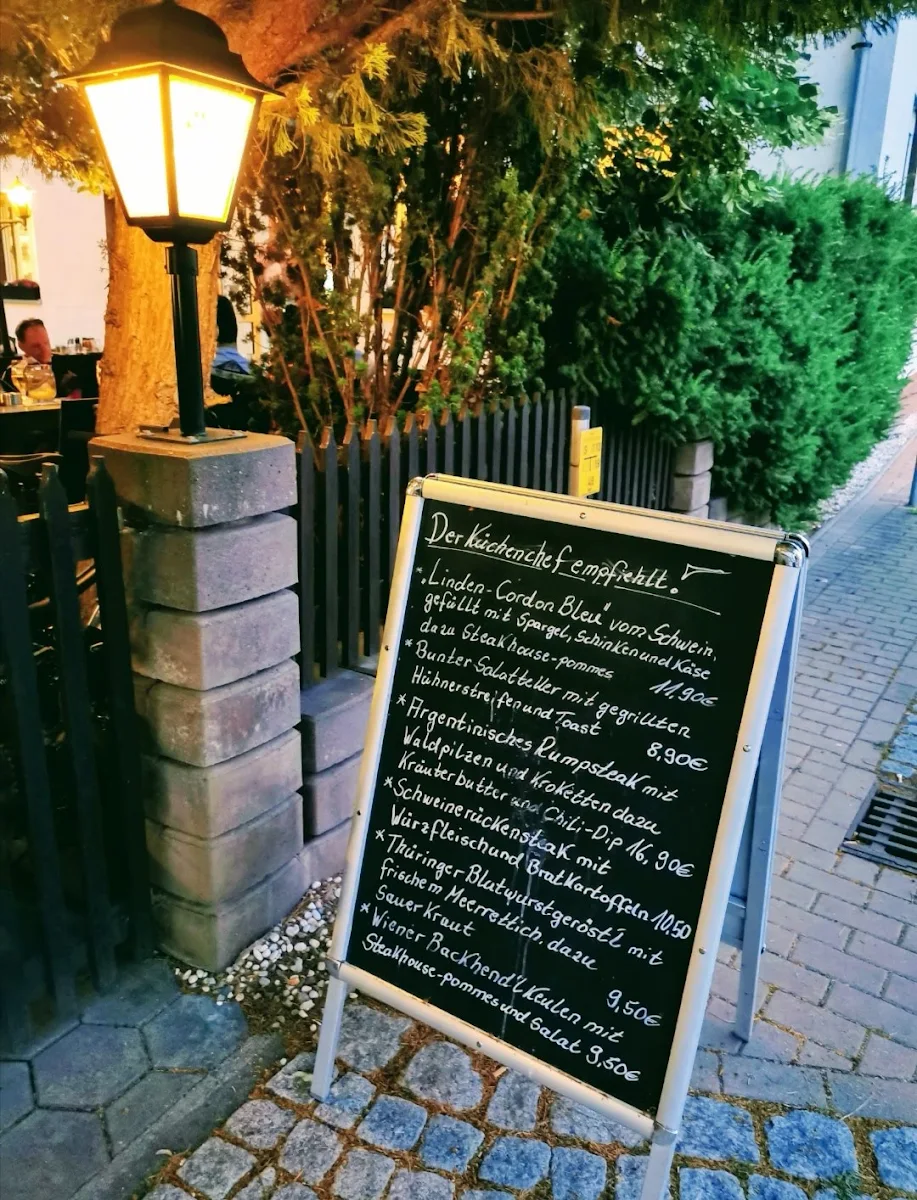 Der Küchenchef empfiehlt.
* „Linden-Cordon Bleu" vom Schwein,
gefüllt mit Spargel, Schinken und Käse
dazu Steakhouse-pommes 11,90€
* Bunter Salatteller mit gegrillten
Hühnerstreifen und Toast 8,90€
* Argentinisches Rumpsteak mit
Waldpilzen und Kroketten dazu
Kräuterbutter und Chili-Dip 16,90€
* Schweinerückensteak mit
Würzfleisch und Bratkartoffeln 10,50
* Thüringer Blutwurstgeröst'l mit
frischem Meerrettich, dazu
Sauerkraut 9,50€
* Wiener Backhend'l Keulen mit
Steakhouse-pommes und Salat 9,50€